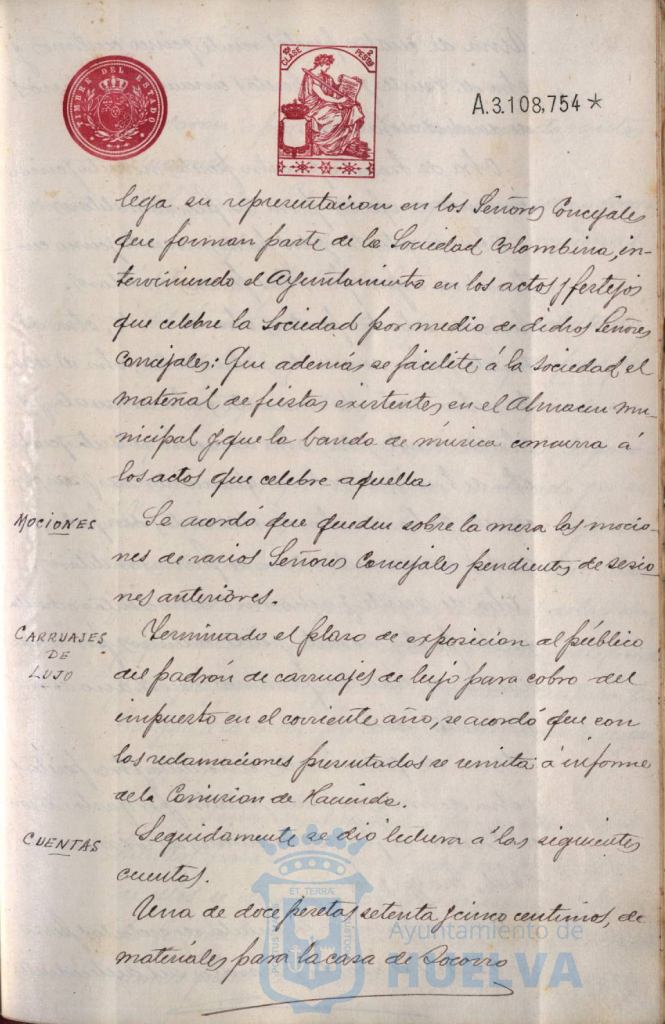 TIMBRE DEL ESTADO
CLASE
PESETAS
A.3.108,754*
lega su representacion en los Señores Concejales
que forman parte de la Sociedad Colombina, in-
terviniendo el Ayuntamiento en los actos y festejos
que celebre la Sociedad por medio de dichos Señores
Concejales: Que además se facilite á la sociedad el
material de fiestas existentes en el Almacen mu-
nicipal y que la banda de música concurra á
los actos que celebre aquella
MOCIONES
Se acordó que queden sobre la mesa las mocio-
nes de varios Señores Concejales pendientes de sesio-
nes anteriores.
CARRUAJES
DE
LUJO
Terminado el plazo de exposicion al público
del padrón de carruajes de lujo para cobro del
impuesto en el corriente año, se acordó que con
las reclamaciones presentadas se remita á informe
de la Comision de Hacienda.
CUENTAS
Seguidamente se dió lectura á las siguientes
cuentas.
Una de doce pesetas setenta y cinco centimos, de
materiales para la casa de Socorro
PORTUS
ET TERRÆ
CUSTODIA
Ayuntamiento de
HUELVA